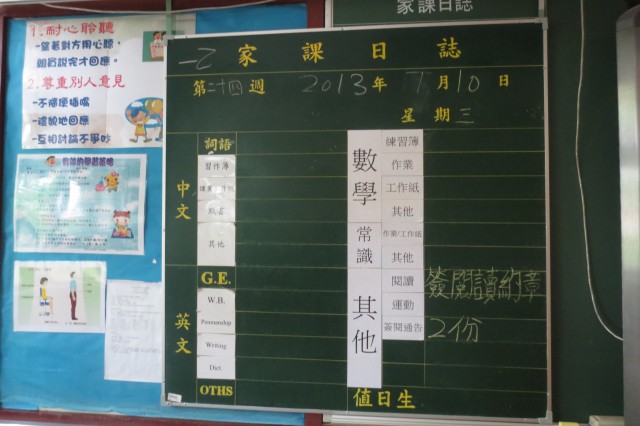 家課日誌
1.耐心聆聽
-望著對方用心聽，
別人說完才回應。
2.尊重別人意見
-不隨便插嘴
-禮貌地回應
-互相討論不爭吵
一乙 家課日誌
第二十四週 2013年 7月10日
星期三
中文
詞語
習作簿
默書
其他
英文
G.E.
W.B.
Penmanship
Writing
Dict.
OTHS
數學
練習簿
作業
工作紙
其他
常識
作業/工作紙
其他
其他
閱讀 簽閱讀約章
運動
簽閱通告 2份
值日生